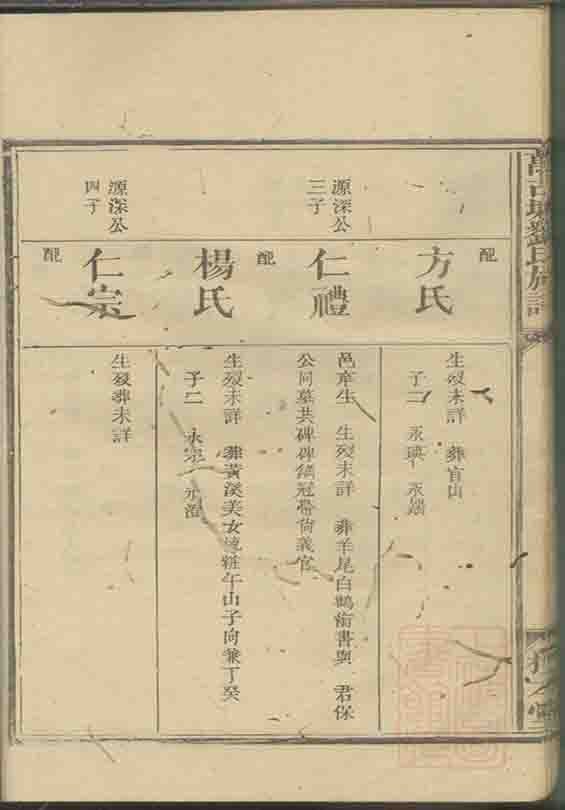 劉氏族譜
配
方氏
生歿未詳 葬官山
子二 永瑛 永瑞
源深公
三子
仁禮
邑庠生 生歿未詳 葬羊尾白鶴 書與 君保
公同墓共碑碑鐫冠帶尚義官
配
楊氏
生歿未詳 葬黃溪美女 粧午山子向兼丁癸
子二 永宗 永澄
源深公
四子
仁宗
生歿葬未詳
配